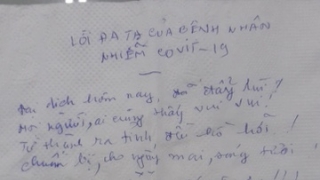 LỜI ĐA TẠ CỦA BỆNH NHÂN
NHIỄM COVIT-19
Đại dịch hôm nay, đẩy lùi!
Mọi người, ai cũng thấy vui vui!
Tự thanh ra tính hồ hởi!
chuẩn bị, cho ngày mai, sáng tươi!